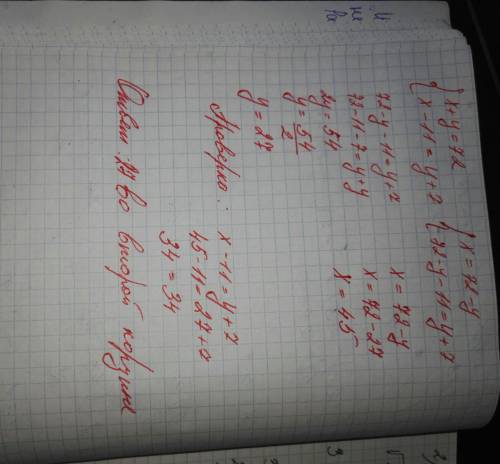 { x + y = 72
{ x - 11 = y + 7
{ x = 72 - y
{ 72 - y - 11 = y + 7
72 - y - 11 = y + 7
72 - 11 - 7 = y + y
2y = 54
y = 54/2
y = 27
x = 72 - y
x = 72 - 27
x = 45
Проверка: x - 11 = y + 7
45 - 11 = 27 + 7
34 = 34
Ответ: 27 во второй корзине